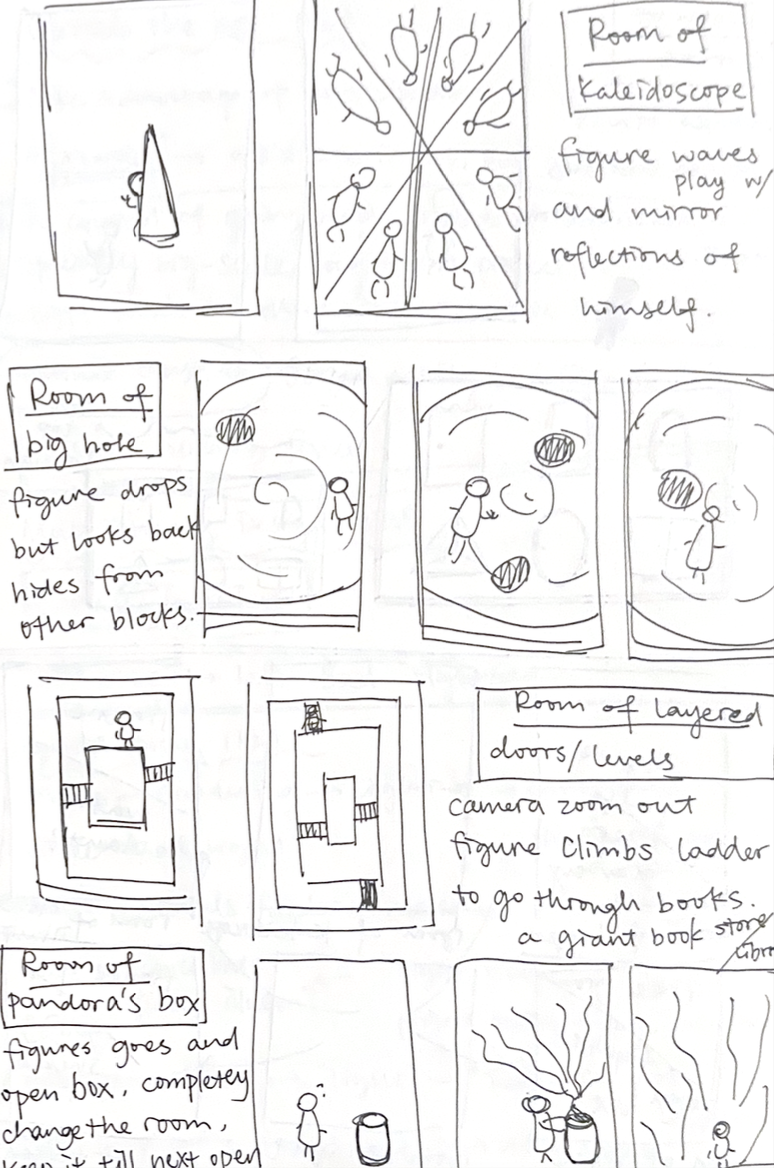 Room of
kaleidoscope
figure waves
play w/
and mirror
reflections of
himself.
Room of
big hole
figure drops
but looks back
hides from
other blocks.
Room of layered
doors/levels
camera zoom out
figure climbs ladder
to go through books.
a giant book store/
Room of
pandora's box
figures goes and
open box, completely
change the room,
keep it till next open